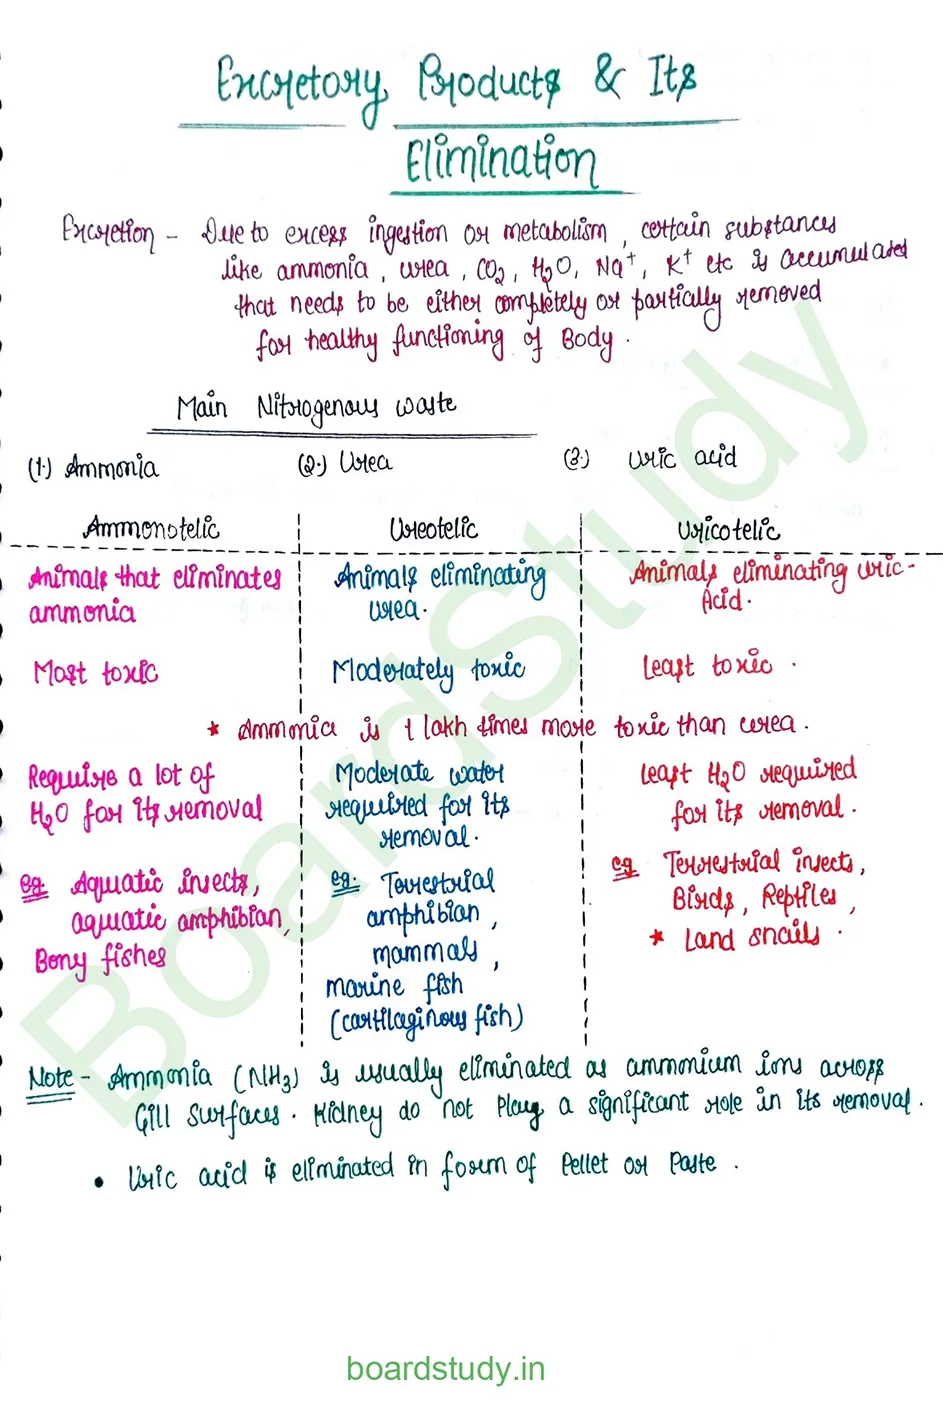 Excretory Products & Its
Elimination
Excretion - Due to excess ingestion or metabolism, certain substances
like ammonia, urea, CO2, H2O, Na+, K+ etc is accumulated
that needs to be either completely or partially removed
for healthy functioning of Body.
Main Nitrogenous waste
(1.) Ammonia (2.) Urea (3.) Uric acid
Ammonotelic Ureotelic Uricotelic
Animals that eliminates Animals eliminating Animals eliminating Uric-
ammonia urea. Acid.
Most toxic Moderately toxic Least toxic.
* Ammonia is 1 lakh times more toxic than urea.
Require a lot of Moderate water Least H2O required
H2O for its removal required for its for its removal.
removal.
eg. Aquatic insects, eg. Terrestrial eg Terrestrial insects,
aquatic amphibian, amphibian, Birds, Reptiles,
Bony fishes mammals, * Land snails.
marine fish
(cartilaginous fish)
Note - Ammonia (NH3) is usually eliminated as ammonium ions across
Gill surfaces. Kidney do not Play a significant role in its removal.
• Uric acid is eliminated in form of Pellet or Paste.
BoardStudy
boardstudy.in